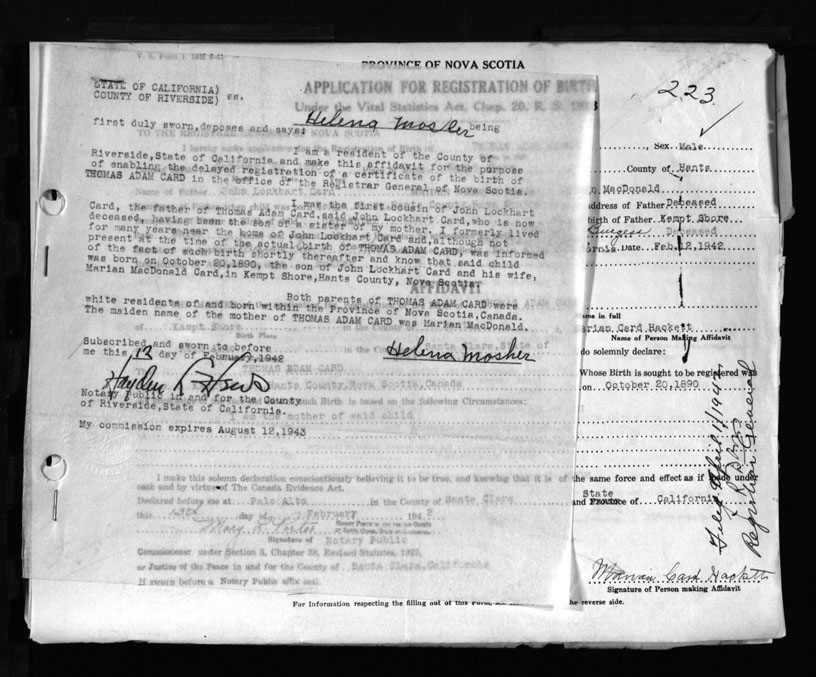 PROVINCE OF NOVA SCOTIA
APPLICATION FOR REGISTRATION OF BIRTH
Under the Vital Statistics Act, Chap. 20, R. S.
223
STATE OF CALIFORNIA)
COUNTY OF RIVERSIDE) ss.
Helena Mosher being
first duly sworn, deposes and says:
I am a resident of the County of
Riverside, State of California and make this affidavit for the purpose
of enabling the delayed registration of a certificate of the birth of
THOMAS ADAM CARD in the office of the Registrar General of Nova Scotia.
I was the first cousin of John Lockhart
Card, the father of Thomas Adam Card, said John Lockhart Card, who is now
deceased, having been the son of a sister of my mother. I formerly lived
for many years near the home of John Lockhart Card and, although not
present at the time of the actual birth of THOMAS ADAM CARD, was informed
of the fact of such birth shortly thereafter and know that said child
was born on October 20, 1890, the son of John Lockhart Card and his wife,
Marian MacDonald Card, in Kempt Shore, Hants County, Nova Scotia.
AFFIDAVIT
Both parents of THOMAS ADAM CARD were
white residents of and born within the Province of Nova Scotia, Canada.
The maiden name of the mother of THOMAS ADAM CARD was Marian MacDonald.
Subscribed and sworn to before
me this 12 day of February, 1942
Helena Mosher
Notary Public in and for the County
of Riverside, State of California.
My commission expires August 12, 1943
Sex Male
County of Hants
MacDonald
address of Father Deceased
birth of Father Kempt Shore
Deceased
Date Feb. 12, 1942
Name in full
Marian Card Hackett
Name of Person Making Affidavit
do solemnly declare:
Whose Birth is sought to be registered was
on October 20, 1890
THOMAS ADAM CARD
Hants County, Nova Scotia, Canada
such Birth is based on the following Circumstances:
I am the mother of said child
I make this solemn declaration conscientiously believing it to be true, and knowing that it is of the same force and effect as if made under
oath and by virtue of The Canada Evidence Act.
Declared before me at Palo Alto in the County of Santa Clara and State of California
this day of February 194
Signature of Notary Public
Commissioner under Section 5, Chapter 38, Revised Statutes, 1923,
or Justice of the Peace in and for the County of Santa Clara, California
If sworn before a Notary Public affix seal.
Marian Card Hackett
Signature of Person making Affidavit
For Information respecting the filling out of this Form, see the reverse side.
Registrar General